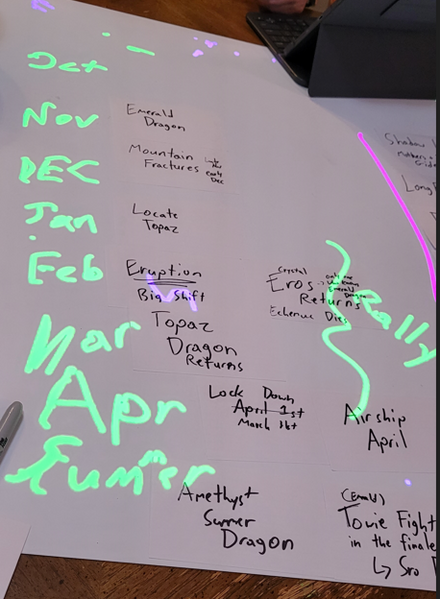 Oct
Nov
Emerald
Dragon
Shadow
DEC
Mountain
Fractures
Late
Nov
early
Dec
Long
Jan
Locate
Topaz
Feb
Eruption
Big Shift
Crystal
Eros
only one
Emerald
Dragon
Returns
Echenue Dies
Really
Mar
Topaz
Dragon
Returns
Apr
Lock Down
April 1st
March 1st
Airship
April
Summer
Amethyst
Summer
Dragon
(Emerald)
Tovie Fight
in the finale
↳ Sro